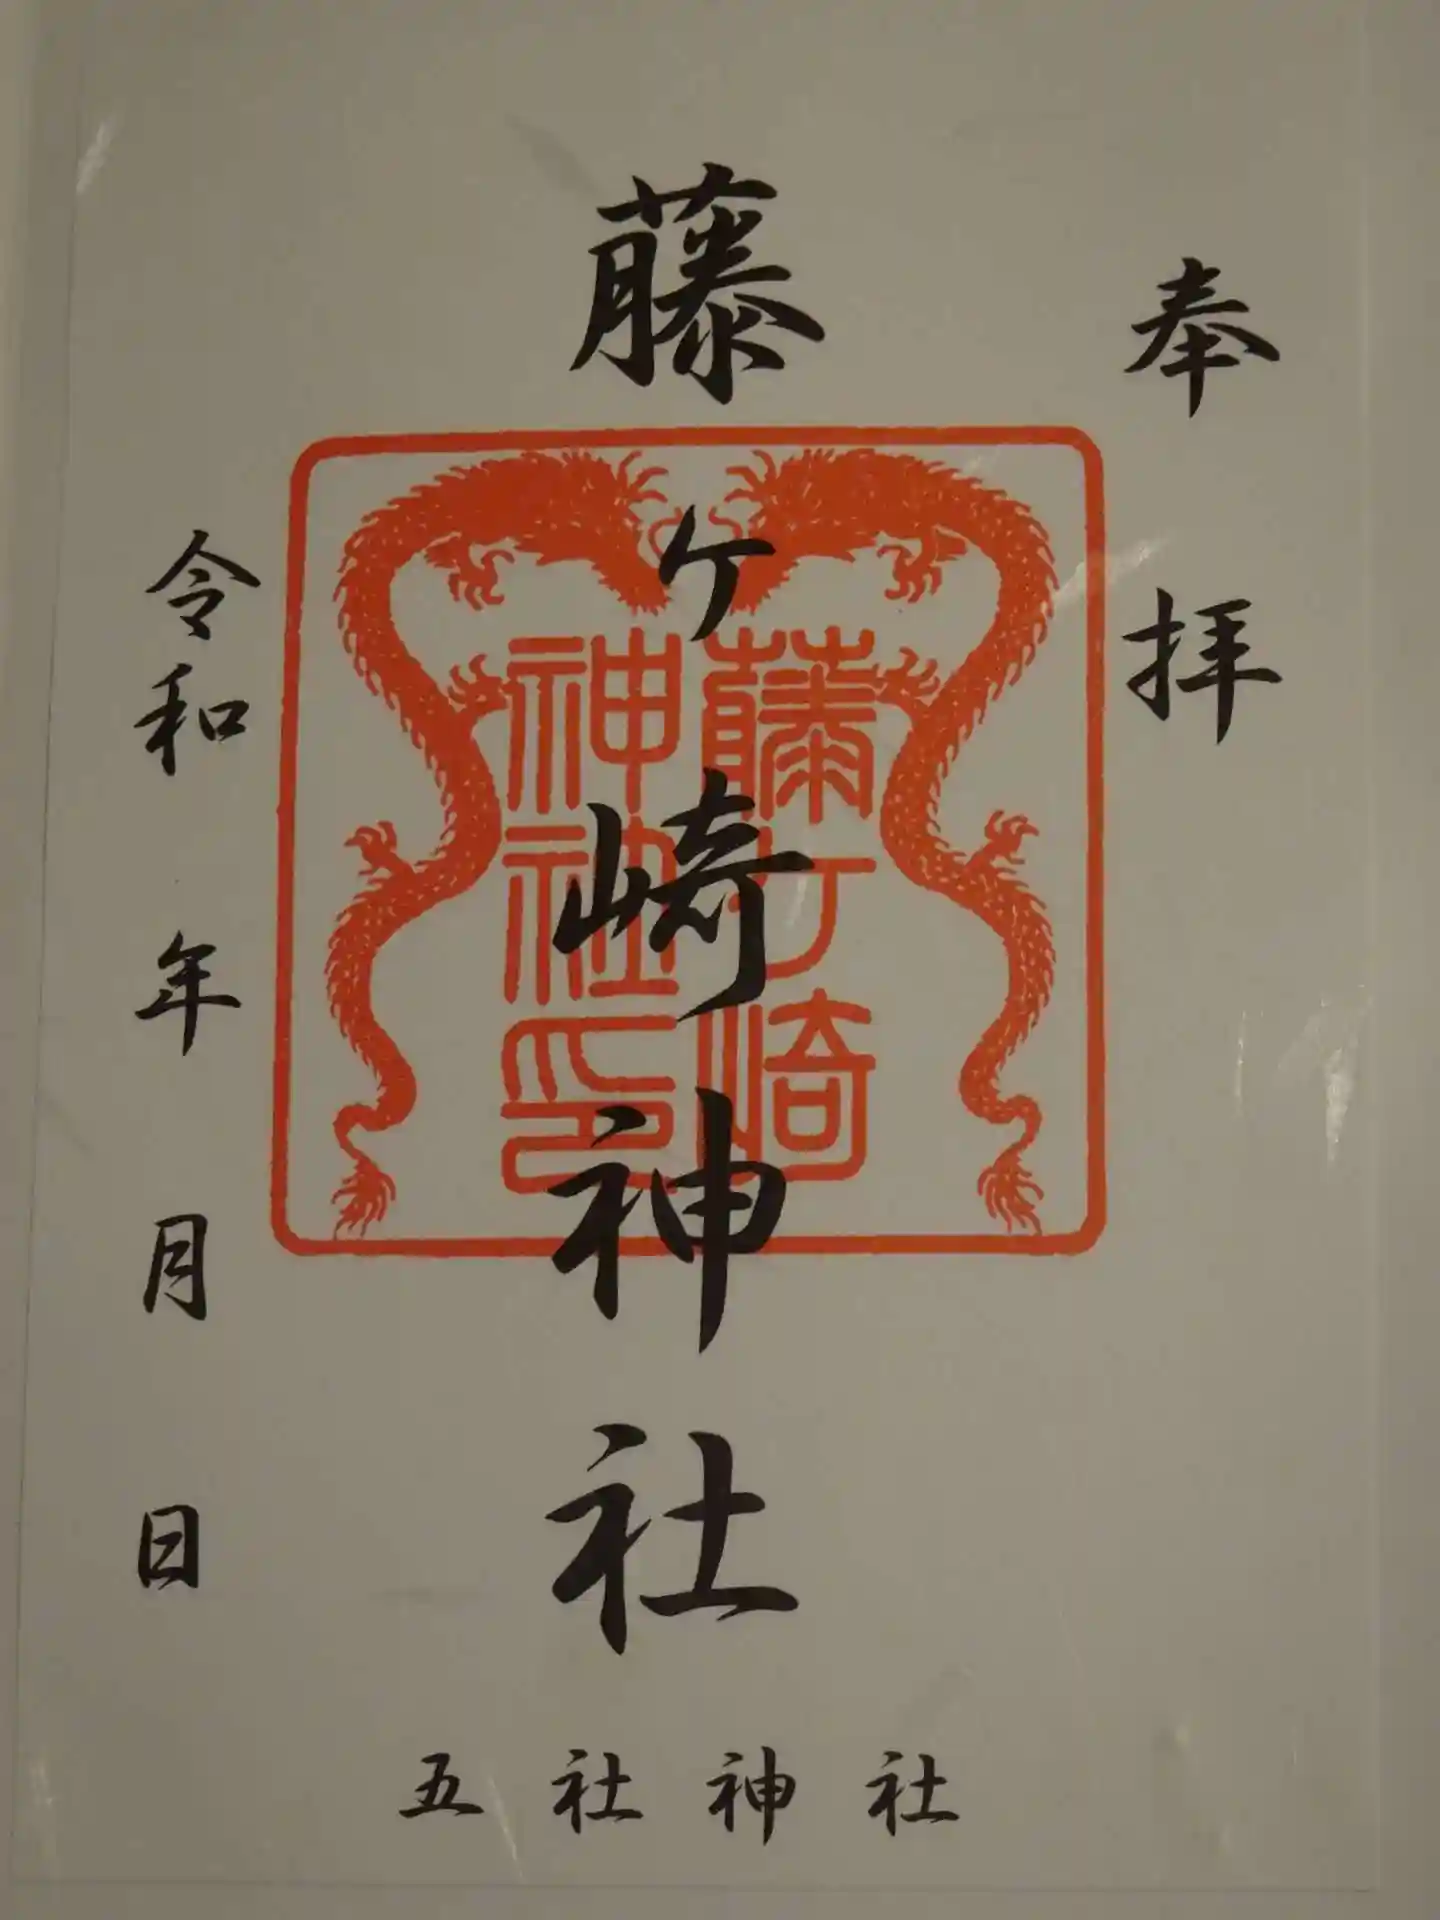 奉拝
藤ヶ崎神社
藤ヶ崎
神社印
令和 年 月 日
五社神社